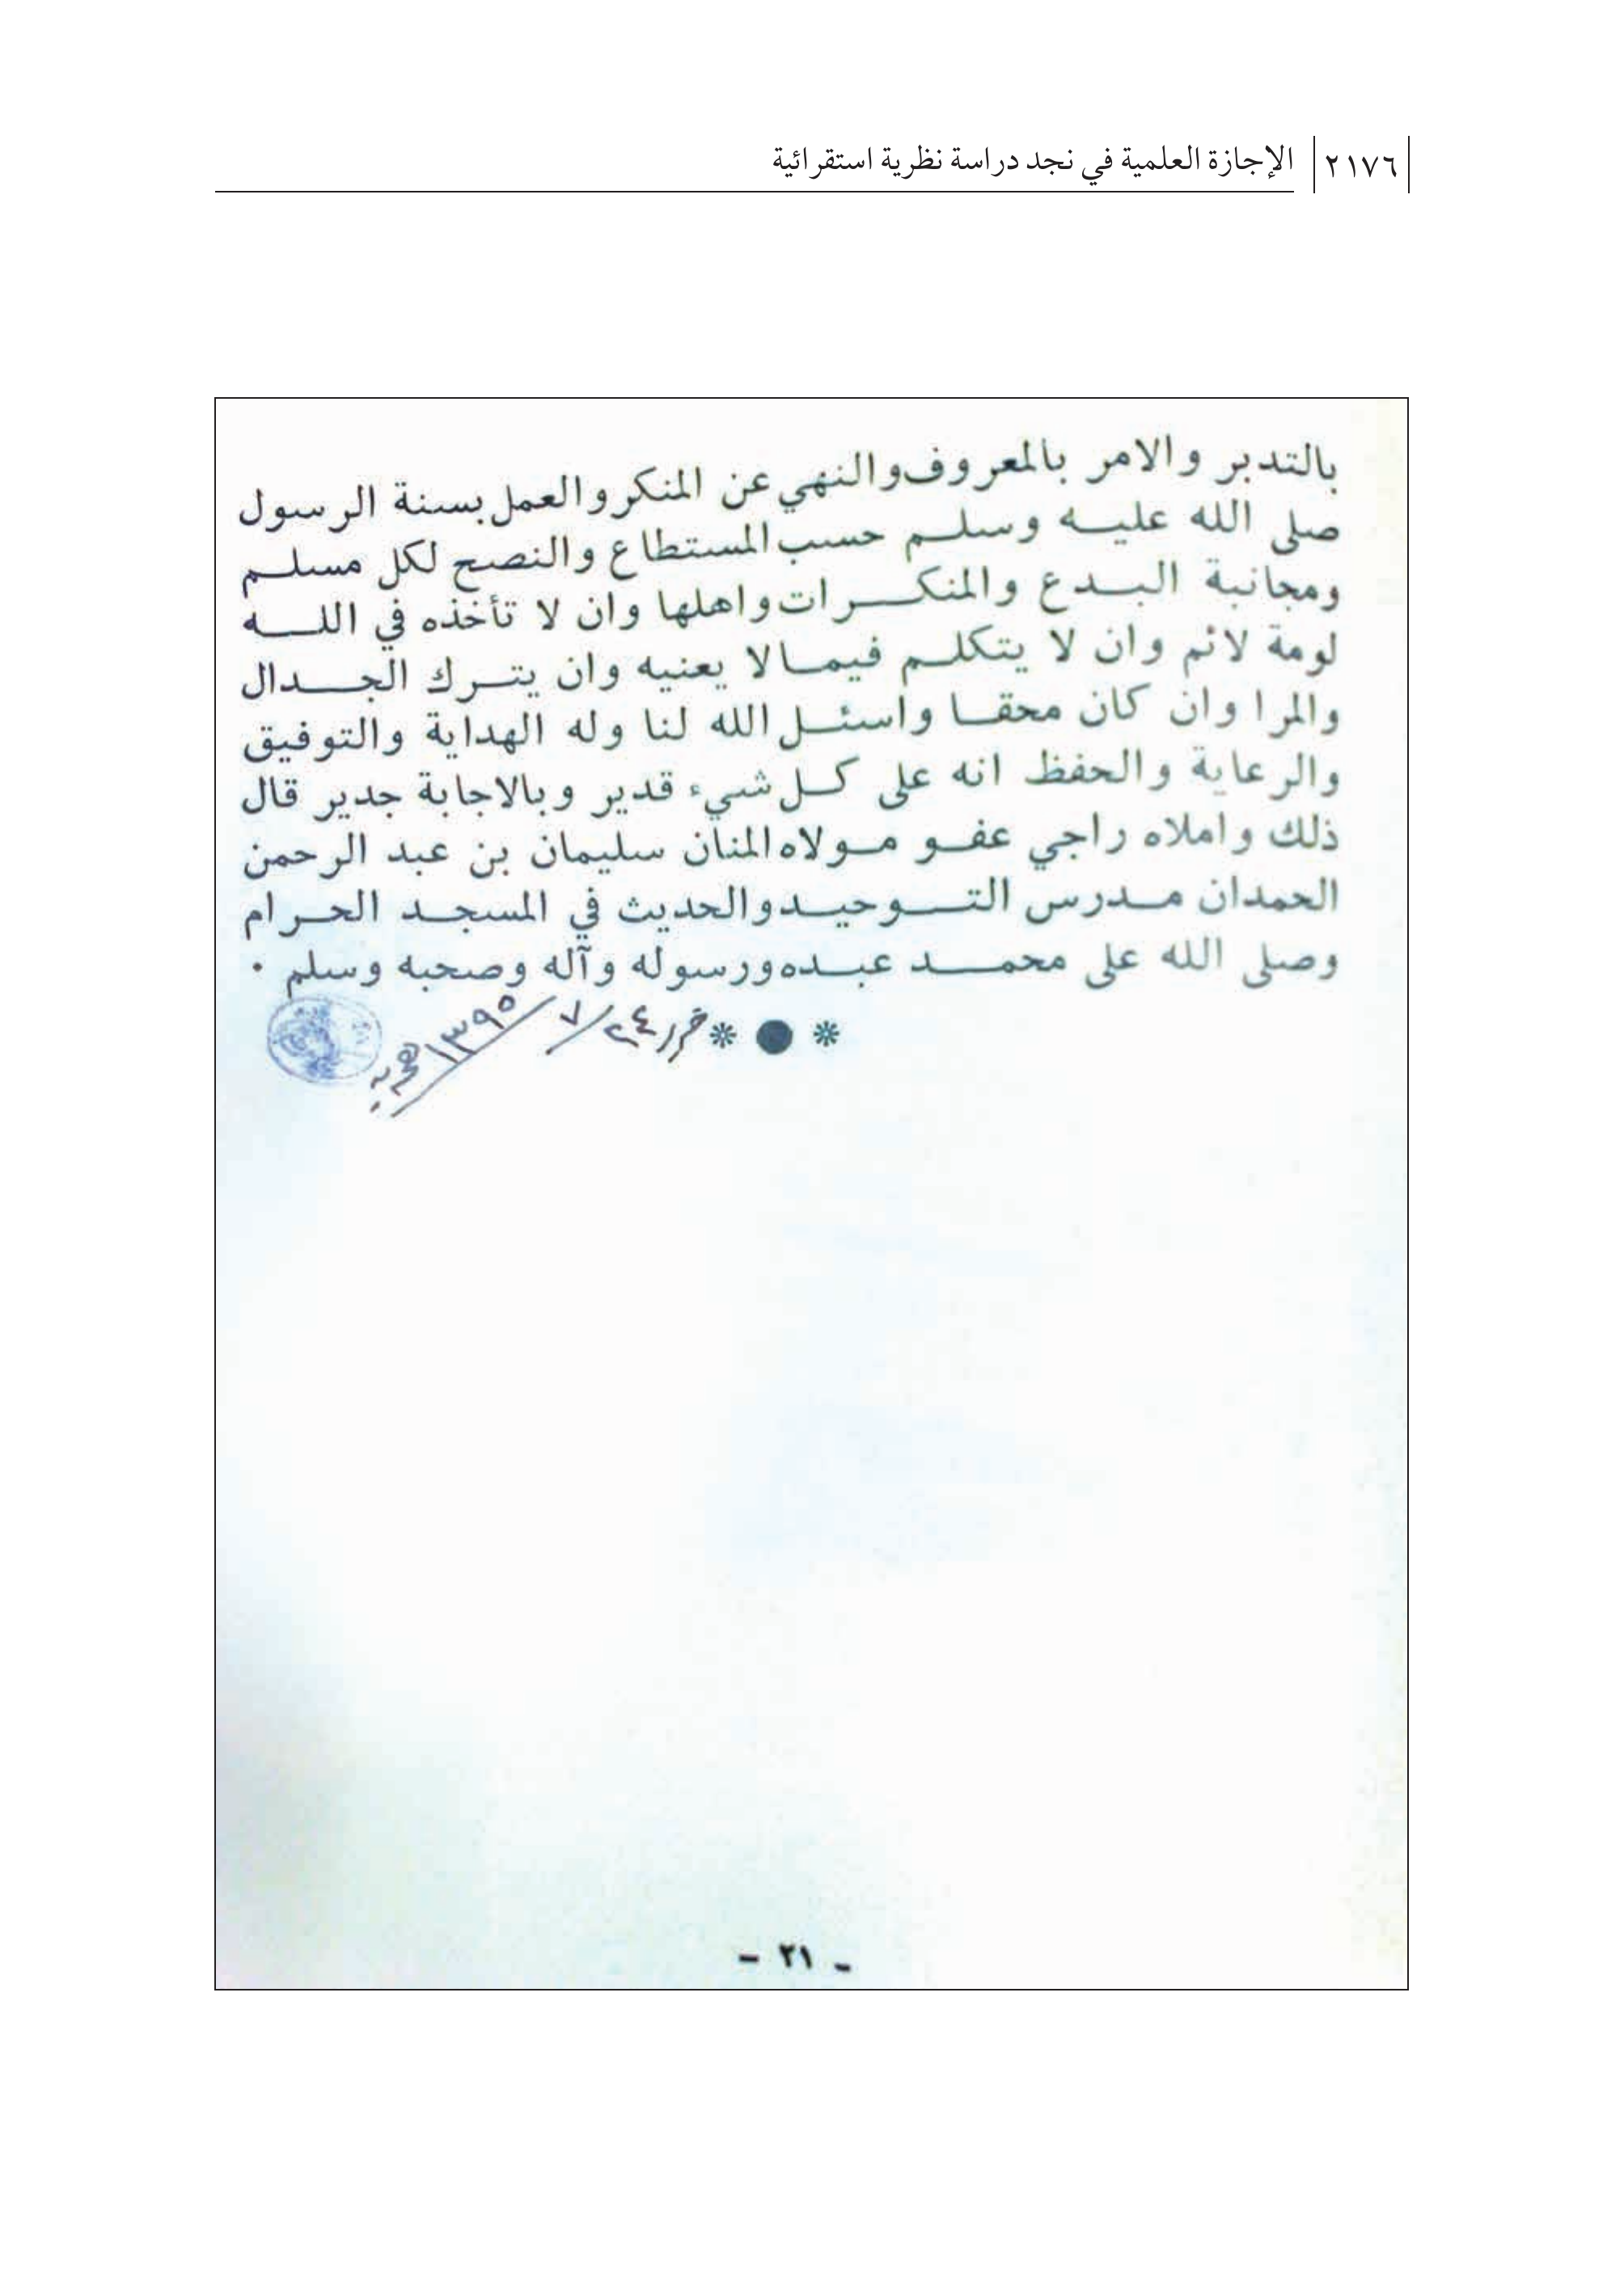 ٢١٧٦ الإجازة العلمية في نجد دراسة نظرية استقرائية
بالتدبر والامر بالمعروف والنهي عن المنكر والعمل بسنة الرسول
صلى الله عليه وسلم حسب المستطاع والنصح لكل مسلم
ومجانبة البدع والمنكرات واهلها وان لا تأخذه في الله
لومة لائم وان لا يتكلم فيما لا يعنيه وان يترك الجدال
والمرا وان كان محقا واسئل الله لنا وله الهداية والتوفيق
والرعاية والحفظ انه على كل شيء قدير وبالاجابة جدير قال
ذلك واملاه راجي عفو مولاه المنان سليمان بن عبد الرحمن
الحمدان مدرس التوحيد والحديث في المسجد الحرام
وصلى الله على محمد عبده ورسوله وآله وصحبه وسلم .
٢٤ / ٧ / ١٣٩٥
- ٢١ -